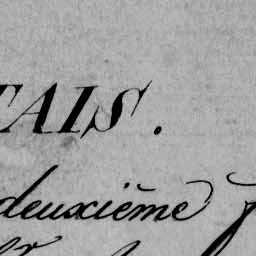 TAIS.
deuxième